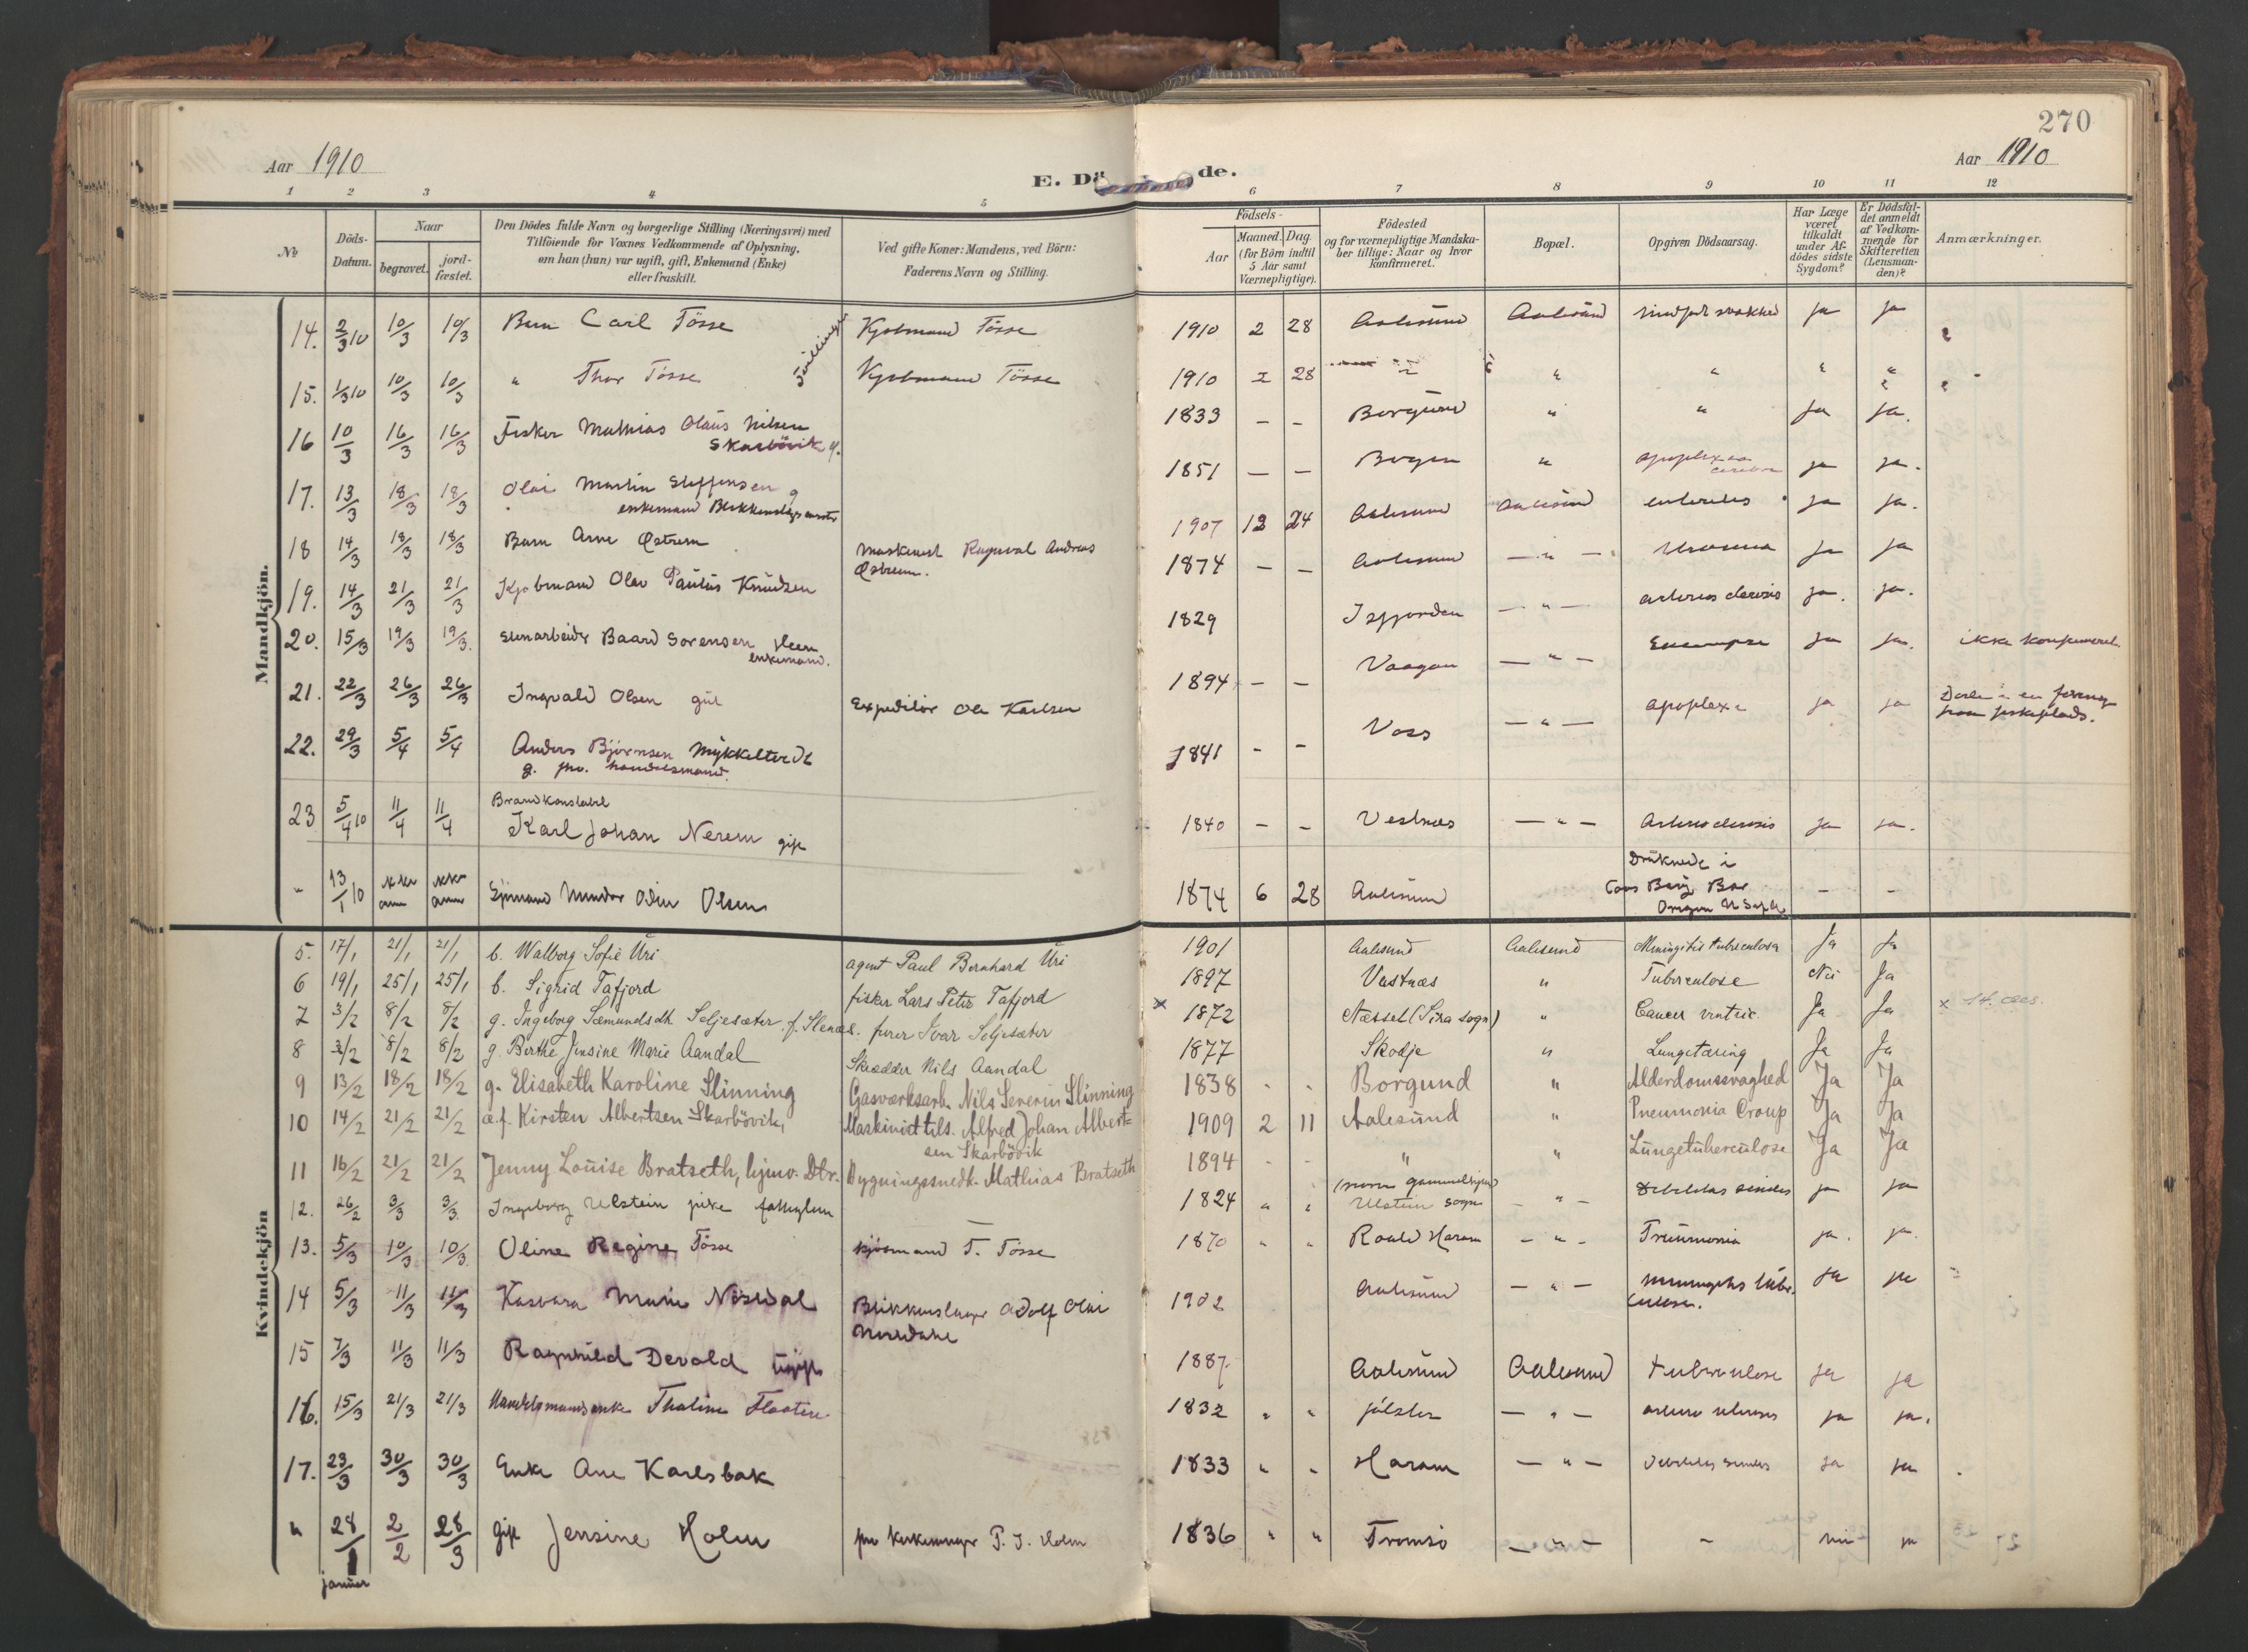 270
Aar 1910
E. Dö de.
Aar 1910
1 2 3 4 5 6 7 8 9 10 11 12
№
Döds-Datum.
Naar
begravet.
jord-fæstet.
Den Dödes fulde Navn og borgerlige Stilling (Næringsvei) med
Tilföiende for Voxnes Vedkommende af Oplysning,
om han (hun) var ugift, gift, Enkemand (Enke)
eller fraskilt.
Ved gifte Koner: Mandens, ved Börn:
Faderens Navn og Stilling.
Födsels-
Aar
Maaned. Dag.
(for Börn indtil
5 Aar samt
Værnepligtige).
Födested
og for værnepligtige Mandska-
ber tillige: Naar og hvor
konfirmeret.
Bopæl.
Opgiven Dödsaarsag.
Har Læge
været
tilkaldt
under Af-
dödes sidste
Sygdom?
Er Dödsfal-
det anmeldt
af Vedkom-
mende for
Skifteretten
(Lensman-
den)?
Anmærkninger.
Mandkjön.
14. 2/3 10 10/3 10/3 Barn Carl Tösse tvillinger Kjøbmand Tösse 1910 2 28 Aalesund Aalesund ja ja
15. 1/3 10 10/3 10/3 " Thor Tösse Kjøbmand Tösse 1910 2 28 " " " "
16 10/3 16/3 16/3 Fisker Mathias Olaus Nilsen
Skarbövik g. 1833 – – Borgund " " ja ja.
17. 13/3 18/3 18/3 Olai Martin Steffensen g
enkemand 1851 – – " apoplexia ja ja.
18 14/3 18/3 18/3 Barn Arne Østrem Maskinist Andreas
Østrem. 1907 12 24 Aalesund Aalesund ja ja.
19. 14/3 21/3 21/3 Kjøbmand Olav Paulus Knudsen 1874 – – Aalesund – " – ja ja
20. 15/3 19/3 19/3. Baard Sorensen
enkemand. 1829 Isfjorden – " – ja. ja.
21. 22/3 26/3 26/3 Ingvald Olsen gut Expeditör Ole Karlsen 1894 – – Vaagan – " – ja ja. ikke
22. 29/3 5/4 5/4 Anders Bjørnsen
g. handelsmand. 1841 – – Voss – " – apoplexi ja ja
23 5/4 10 11/4 11/4 Brandkonstabel
Karl Johan Nerem gift 1840 – – Vestnæs – " – ja ja.
" 13/1 10 Odin Olsen 1874 6 28 Aalesund Druknede i
Coos Bay Bar
Oregon – –
Kvindekjön
5. 17/1 21/1 21/1 b. Walborg Sofie Uri agent Paul Bernhard Uri 1901 Aalesund Aalesund Meningitis tuberculosa Ja Ja
6 19/1 25/1 25/1 b. Sigrid Tafjord fisker Lars Peter Tafjord 1897 Vestnæs " Tuberculose Nei Ja
7 3/2 8/2 8/2 g. Ingeborg Sæmundsdtr. Seljesæter, f. furer Ivar Seljesæter x 1872 Næsset (Sira sogn) " Cancer ventric. Ja Ja x
8 3/2 8/2 8/2 g. Berthe Jensine Marie Aandal Skrædder Nils Aandal 1877 Skodje " Lungetæring Ja Ja
9 13/2 18/2 18/2 g. Elisabeth Karoline Slinning Gasværksarb. Nils Severin Slinning 1838 - - Borgund " Alderdomssvaghed Ja Ja
10 14/2 21/2 21/2 æ.f. Kirsten Albertsen Skarbövik, Maskinist tils. Alfred Johan Albert=
sen Skarbövik 1909 2 11 Aalesund " Pneumonia Croup Ja Ja
11 16/2 21/2 21/2 Jenny Louise Bratseth, hjmv. Dtr. Bygningssnedk. Mathias Bratseth 1894 - - " " Lungetuberculose Ja Ja
12. 26/2 3/3 3/3. Ingeborg Ulstein pike 1824 " "
Ulstein sogn – " – ja ja
13. 5/3 10/3 10/3 Oline Regine Tösse kjöbmand T. Tösse 1870 " " Roald Haram – " – ja. ja.
14 5/3 11/3 11/3 Marie Blikkenslager Adolf Olai 1902 Aalesund – " – ja ja
15 7/3 11/3 11/3 Ragnhild Devold ugift 1887 Aalesund Aalesund tuberculose ja ja
16. 15/3 21/3 21/3 Handelsmands enke Thaline 1832 " " jölster – " – ja ja.
17. 23/3 30/3 30/3 Enke Ane Karlsbak 1833 " " Haram – " – ja ja
" 28/1 2/2 28/3 gift Jensine Holm P. J. Holm 1836 " " Tromsö – " – – nei ja
januar